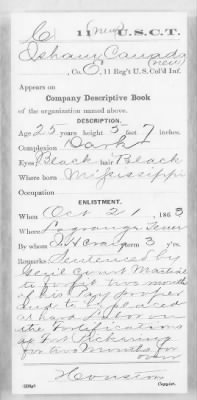 C 11 (new) U.S.C.T.
Isham Canada
(new)
, Co. C, 11 Reg't U.S. Col'd Inf.
Appears on
Company Descriptive Book
of the organization named above.
DESCRIPTION.
Age 25 years; height 5 feet 7 inches.
Complexion Dark
Eyes Black; hair Black
Where born Mississippi
Occupation
ENLISTMENT.
When Oct 21, 1863
Where Lagrange Tenn
By whom term 3 y'rs
Remarks Sentenced by
Genl Court Martial
to forfeit two months
of his pay proper
and to be placed
at hard labor on
the fortifications
at Fort Pickering
for two months
Houston
Copyist.